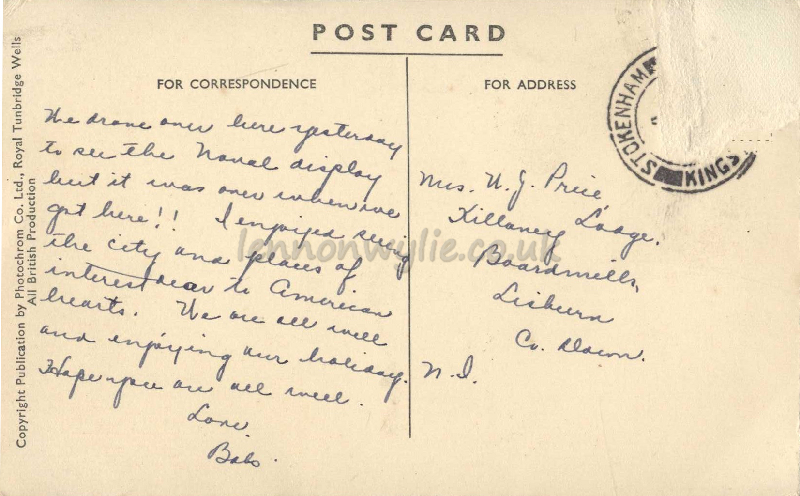 POST CARD
FOR CORRESPONDENCE
We drove over here yesterday
to see the Naval display
but it was over when we
got here!! I enjoyed seeing
the city and places of
interest dear to American
hearts. We are all well
and enjoying our holiday.
Hope you are all well.
Love
Babs.
FOR ADDRESS
Mrs. W. J. Price,
Killaney Lodge,
Boardmills,
Lisburn
Co. Down.
N. I.
STOKENHAM
KINGS
Copyright Publication by Photochrom Co. Ltd., Royal Tunbridge Wells
All British Production
lennonwylie.co.uk